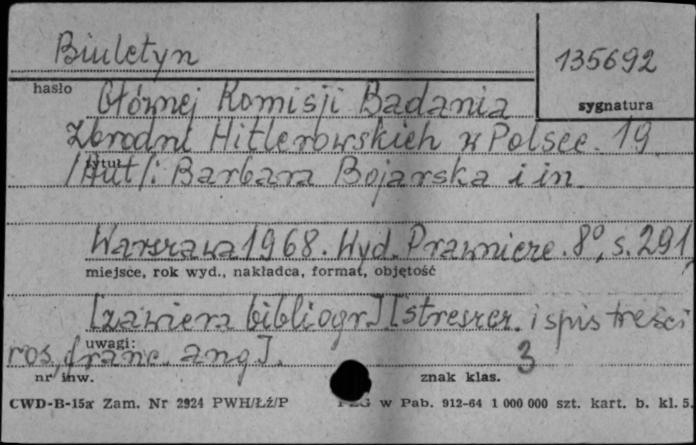 Biuletyn
135692
hasło
sygnatura
Głównej Komisji Badania
Zbrodni Hitlerowskich w Polsce. 19.
tytuł
/Aut/: Barbara Bojarska i in.
Warszawa 1968. Wyd. Prawnicze. 8°, s. 291,
miejsce, rok wyd., nakładca, format, objętość
[zawiera bibliogr] [streszcz. i spis treści
uwagi:
ros, franc. ang].
3
nr inw.
znak klas.
CWD-B-15a Zam. Nr 2924 PWH/Łź/P
w Pab. 912-64 1 000 000 szt. kart. b. kl. 5.